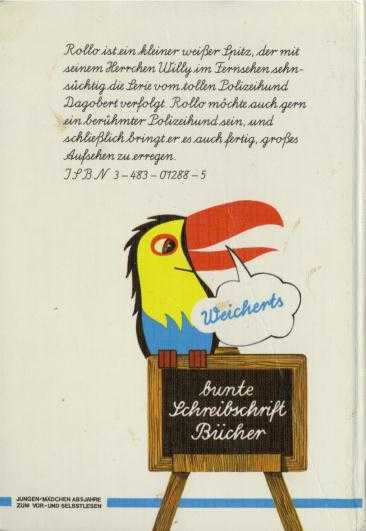 Rollo ist ein kleiner weißer Spitz, der mit
seinem Herrchen Willy im Fernsehen sehn-
süchtig die Serie vom tollen Polizeihund
Dagobert verfolgt. Rollo möchte auch gern
ein berühmter Polizeihund sein, und
schließlich bringt er es auch fertig, großes
Aufsehen zu erregen.
ISBN 3-483-01288-5
Weicherts
bunte
Schreibschrift
Bücher
JUNGEN-MÄDCHEN AB 5 JAHRE
ZUM VOR-UND SELBSTLESEN